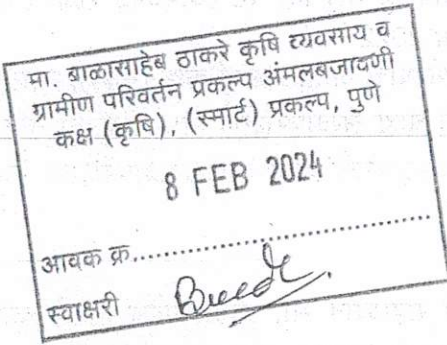 मा. बाळासाहेब ठाकरे कृषि व्यवसाय व
ग्रामीण परिवर्तन प्रकल्प अंमलबजावणी
कक्ष (कृषि), (स्मार्ट) प्रकल्प, पुणे
8 FEB 2024
आवक क्र.......................................
स्वाक्षरी